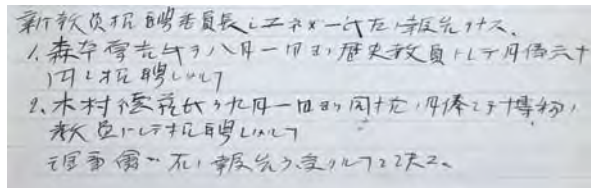 新教員招聘委員長ヱアネス一氏左ノ報告ヲナス、
1. 森本厚吉氏ヲ八月一日ヨリ歴史教員トシテ月俸六十
円ニテ招聘シタルコト
2. 木村德蔵氏ヲ九月一日ヨリ同十元ノ月俸ニテ博物ノ
教員トシテ招聘シタルコト
理事会ハ右ノ報告ヲ受クルコトニ決ス。